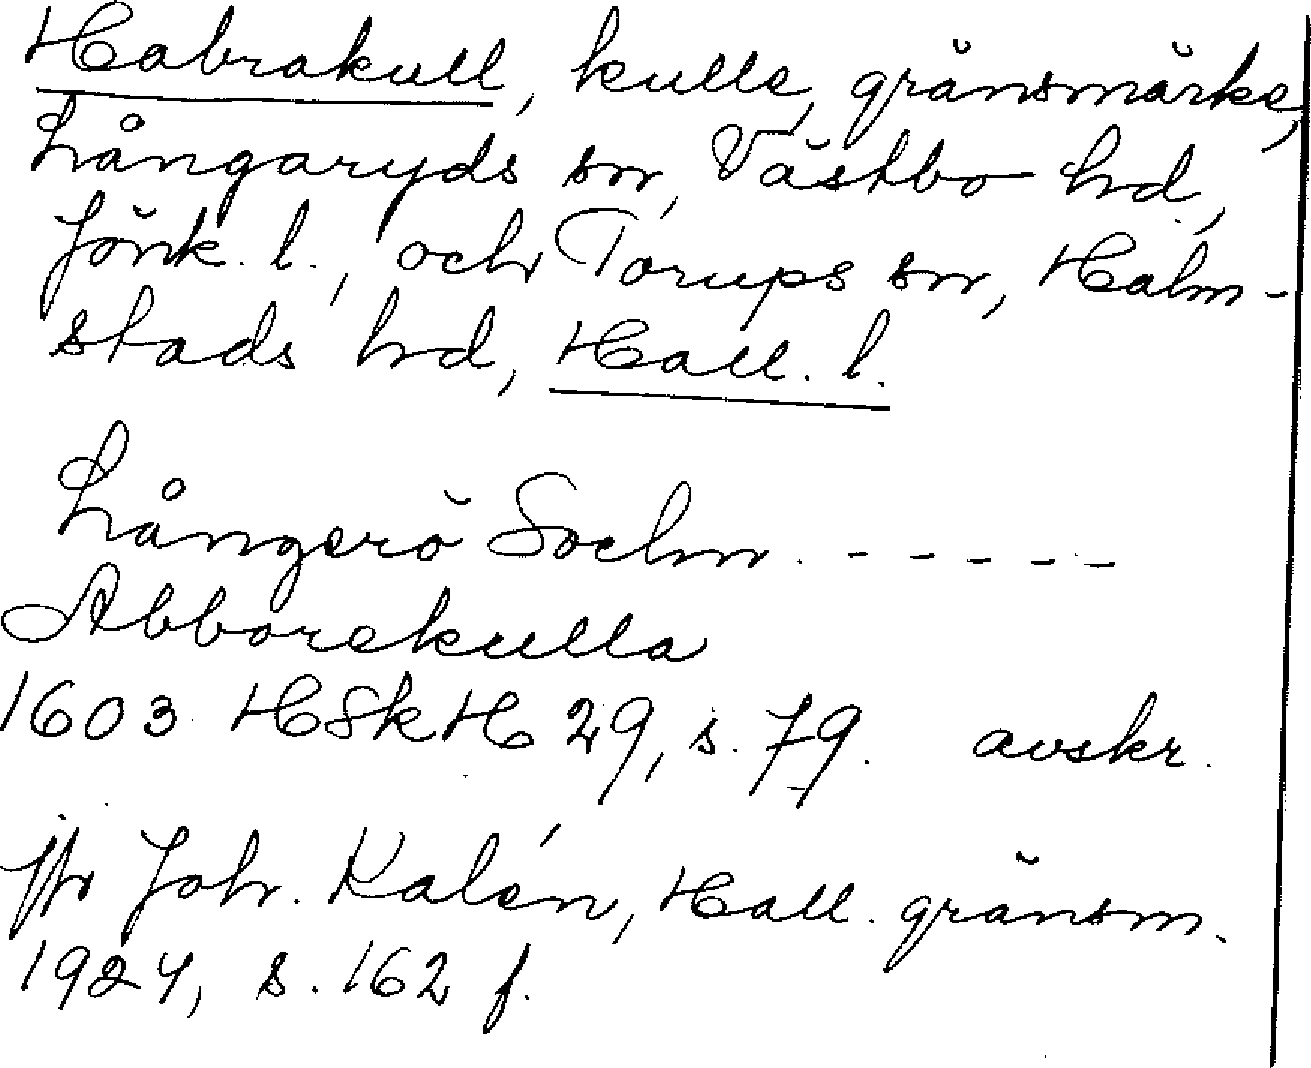 Habrakull, kulle, gränsmärke,
Långaryds sn, Västbo hd,
Jönk. l., och Torups sn, Halm-
stads hd, Hall. l.
Långerö Sochn. - - - - -
Abborekulla
1603 HSkH 29, s. 79. avskr.
jfr Joh. Kalén, Hall. gränsm.
1924, s. 162 f.